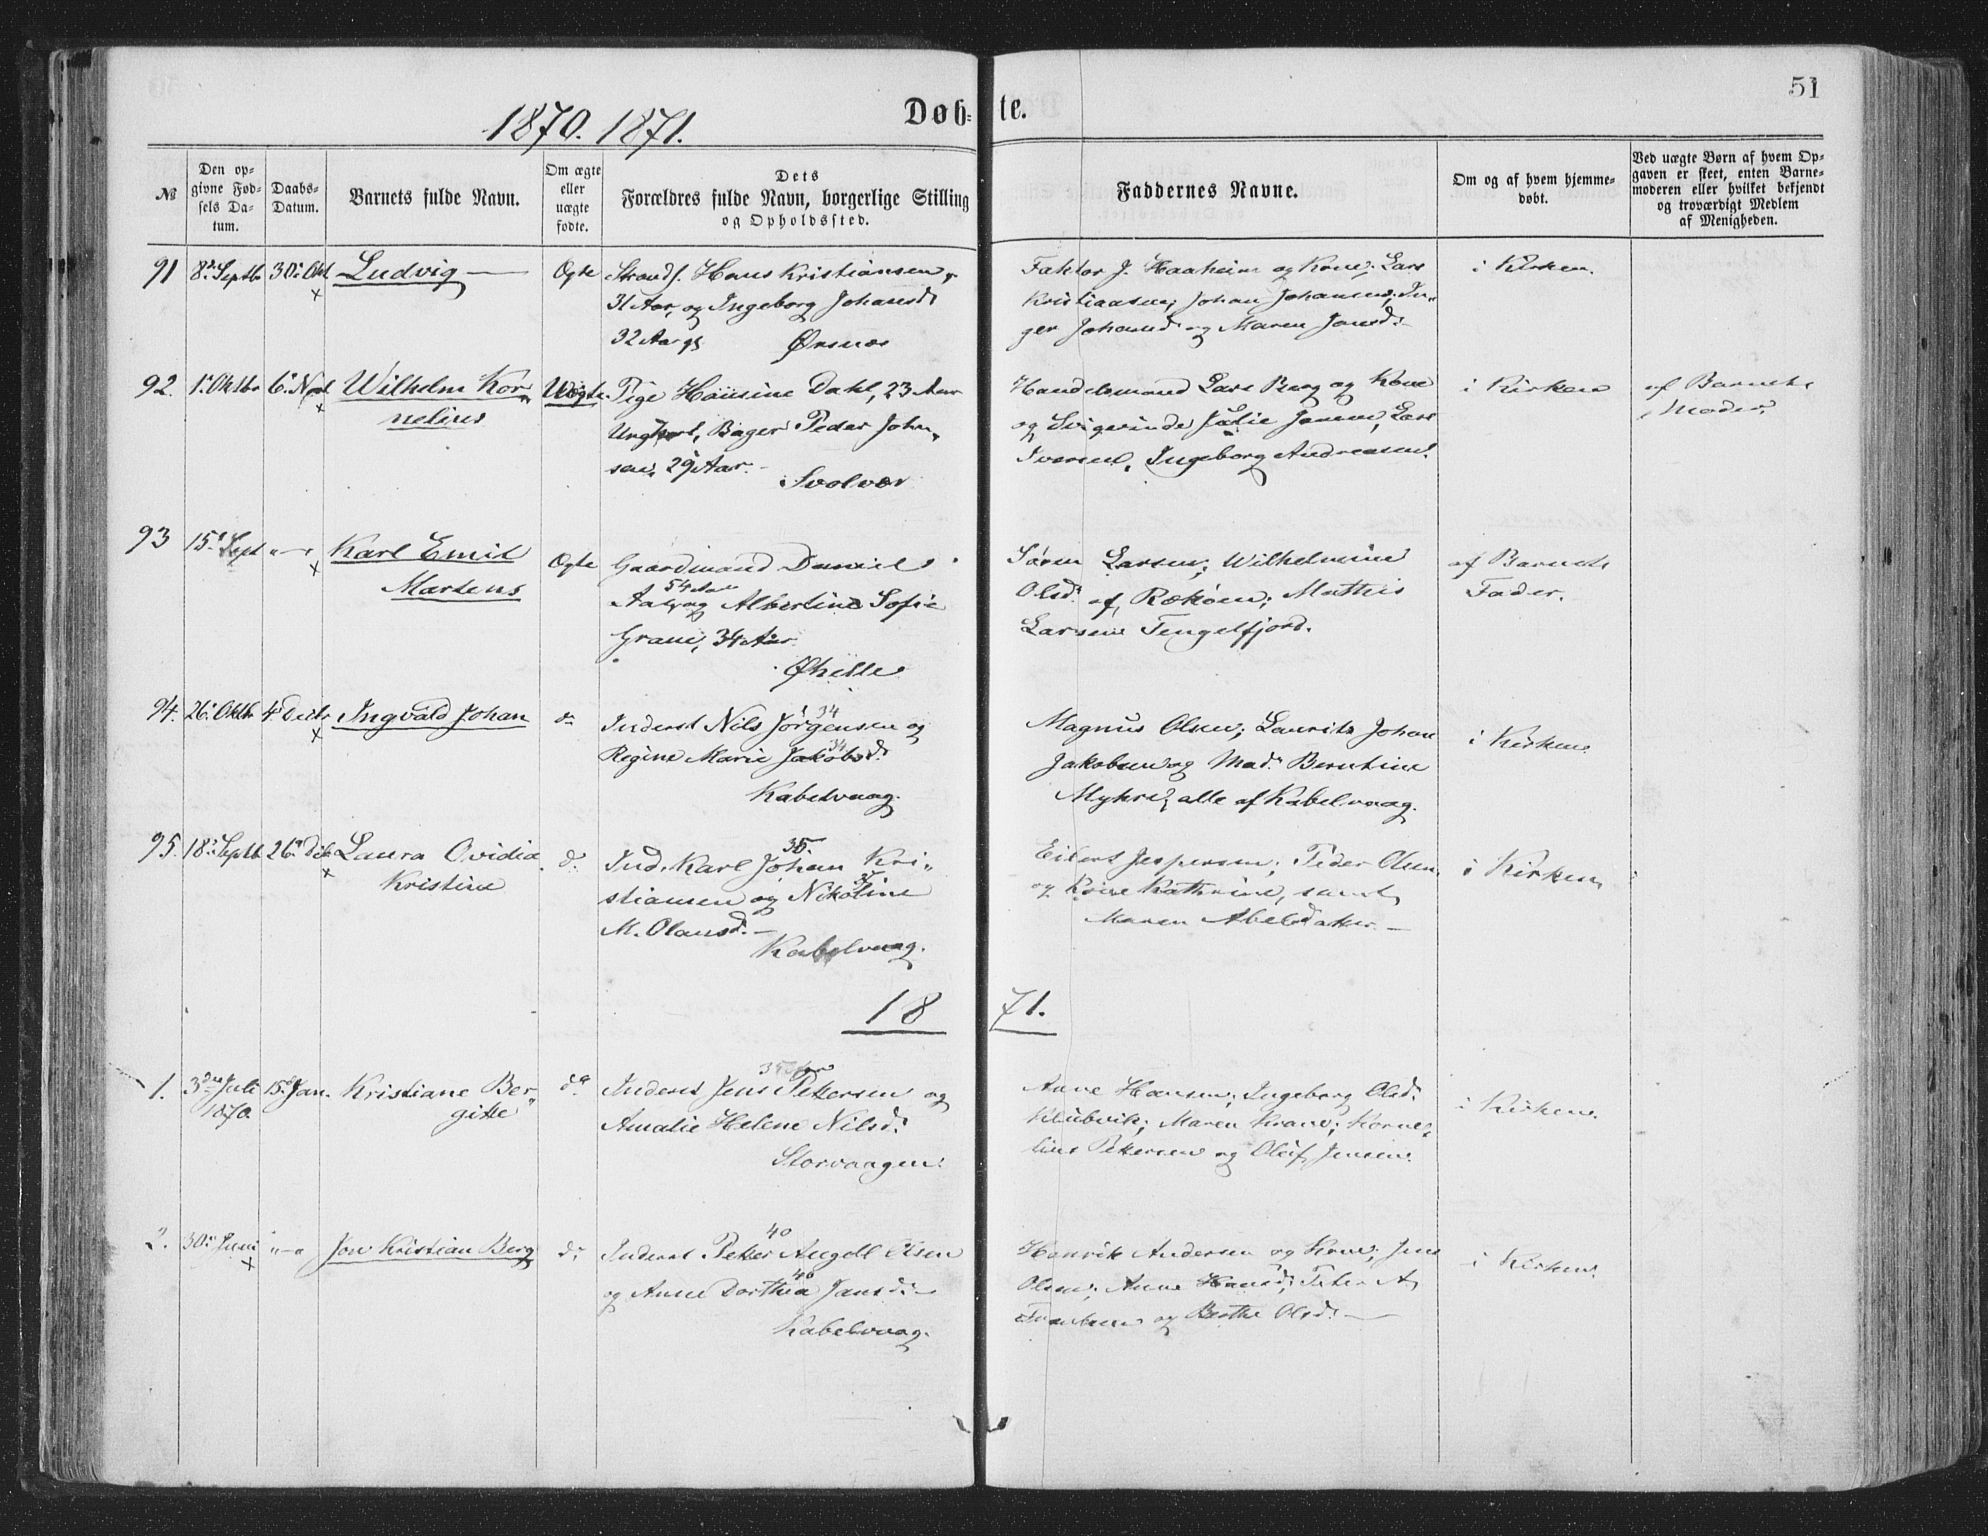 51
1870. 1871.
Døb- te.
№
Den op-
givne Fød-
sels Da-
tum.
Daabs-
Datum.
Barnets fulde Navn.
Om ægte
eller
uægte
fødte.
Dets
Forældres fulde Navn, borgerlige Stilling
og Opholdssted.
Faddernes Navne.
Om og af hvem hjemme-
døbt.
Ved uægte Børn af hvem Op-
gaven er skeet, enten Barne-
moderen eller hvilket bekjendt
og troværdigt Medlem
af Menigheden.
91 8de Septb 30 Okt Ludvig Ogte
Hans Kristiansen,
31 Aar, og Ingeborg Johansd.
32 Aar gl
Ørsnæs
Faktor J. Haaheim og Kone, Lars
Kristiansen, Johan Johansen, In-
ger Johansd. og Maren Jonsd.
i Kirken.
92. 1. Oktbr 6. Nov Wilhelm Kor-
nelius
Uægte. Pige Hansine Dahl, 23 Aar
Ungkarl, Bager Peder John-
sen, 29 Aar.
Svolvær
Handelsmand Lars Berg og Kone
og Svigerinde Julie Jensen, Lars
Iversen, Ingeborg Andreasen.
i Kirken
af Barnets
Moder.
93 15. Sept " — " Karl Emil
Martens
Ogte Gaardmand Daniel
54 Aar
og Albertine Sofie
Grane, 34 Aar
Øhille
Søren Larsen, Wilhelmine
Olsd. af Røkøen; Mathis
Larsen Tengelfjord.
af Barnets
Fader.
94. 26. Oktbr 4 Decbr Ingvald Johan do
34
Inderst Nils Jørgensen og
34
Regine Marie Jakobsd.
Kabelvaag.
Magnus Olsen; Laurits Johan
Jakobsen og Mad. Berntine
Myhre, alle af Kabelvaag.
i Kirken.
95. 18. Septb 26. Dcb Laura Ovidia
Kristine
do
35.
Ind. Karl Johan Kri-
37
stiansen og Nikoline
M. Olausd. —
Kabelvaag.
Eilert Jespersen; Peder Olsen,
og Kone Kathrine, samt
Maren Abeldatter. —
i Kirken
18 71.
1. 3die Juli
1870
15. Jan. Kristiane Ber-
gitte
do
35 Aar
Inderst Jens Pettersen og
Amalie Helene Nilsd.
Storvaagen.
Anne Hansen; Ingeborg Olsd.
Klubvik; Maren Krane; Korne-
lius Pettersen og Oluf Jensen.
i Kirken.
2. 30. Juni " — " Jon Kristian Berg do
40
Inderst Petter Angell Olsen
40
og Anne Dorthea Jansd. —
Kabelvaag.
Henrik Andersen og Kone; Jens
Olsen; Anne Hansd; Peter A.
og Berthe Olsd. —
i Kirken.